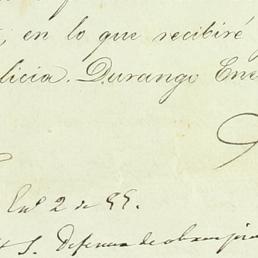 , en lo que recibiré
licia. Durango Ene
En° 2 de 55.
S. Defensa de